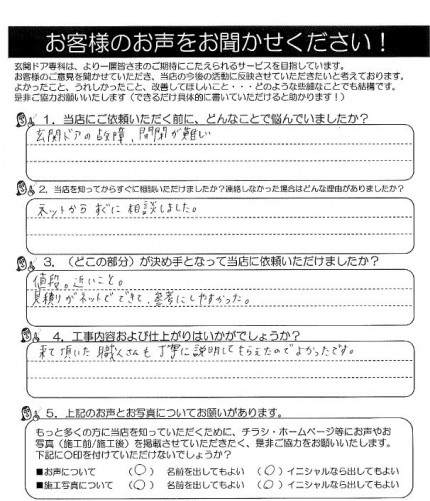 お客様のお声をお聞かせください！
玄関ドア専科は、より一層皆さまのご期待にこたえられるサービスを目指しています。
お客様のご意見を聞かせていただき、当店の今後の活動に反映させていただきたいと考えております。
よかったこと、うれしかったこと、改善してほしいこと・・・どのような些細なことでも結構です。
是非ご協力お願いいたします（できるだけ具体的に書いていただけると助かります！）
1．当店にご依頼いただく前に、どんなことで悩んでいましたか？
玄関ドアの故障、開閉が難しい
2．当店を知ってからすぐに相談いただけましたか？連絡しなかった場合はどんな理由がありましたか？
ネットからすぐに相談しました。
3．（どこの部分）が決め手となって当店に依頼いただけましたか？
値段。近いこと。
見積りがネットでできて、参考にしやすかった。
4．工事内容および仕上がりはいかがでしょうか？
来て頂いた職人さんも丁寧に説明してもらえたのでよかったです。
5．上記のお声とお写真についてお願いがあります。
もっと多くの方に当店を知っていただくために、チラシ・ホームページ等にお声やお
写真（施工前/施工後）を掲載させていただきたく、是非ご協力をお願いいたします。
下記に〇印を付けていただけないでしょうか？
■お声について （〇） 名前を出してもよい （〇） イニシャルなら出してもよい
■施工写真について （〇） 名前を出してもよい （〇） イニシャルなら出してもよい